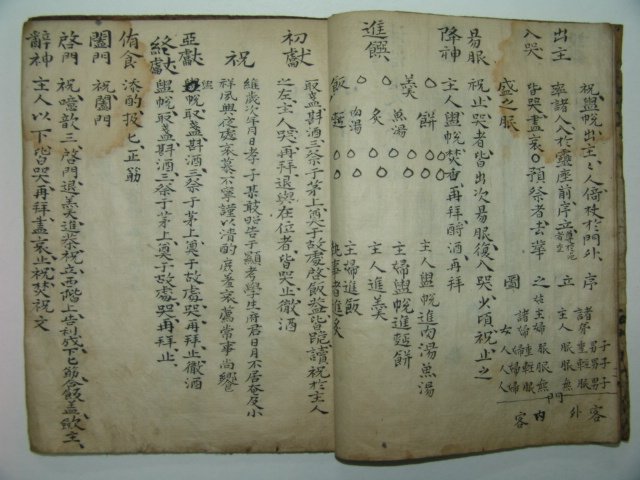 出主 祝盥帨出主主人倚杖於門外
率諸人入於靈座前序立
入哭 皆哭盡哀
易服 祝止哭者皆出次易服復入哭少頃祝止之
降神 主人盥帨焚香再拜酹酒再拜
進饌
餠 魚湯 肉湯
羹 炙
飯 麵
主人盥帨進肉湯魚湯
主婦盥帨進麵餠
主人進羹
主婦進飯
執事者進炙
初獻 取盞斟酒三祭于茅上奠于故處啓飯盖皆跪讀祝於主人
之左主人哭再拜退與在位者皆哭止徹酒
祝 維歲次年月日孝子某敢昭告于顯考學生府君日月不居奄及小
祥夙興夜處哀慕不寧謹以淸酌庶羞哀薦常事尙饗
亞獻 盥帨取盞斟酒三祭于茅上奠于故處哭再拜止徹酒
終獻 盥帨取盞斟酒三祭于茅上奠于故處哭再拜止
侑食 添酌扱匕正筯
闔門 祝闔門
啓門 祝噫歆三啓門退羹進茶祝立西階上告利成下匕筯合飯盖斂主
辭神 主人以下皆哭再拜盡哀止祝焚祝文